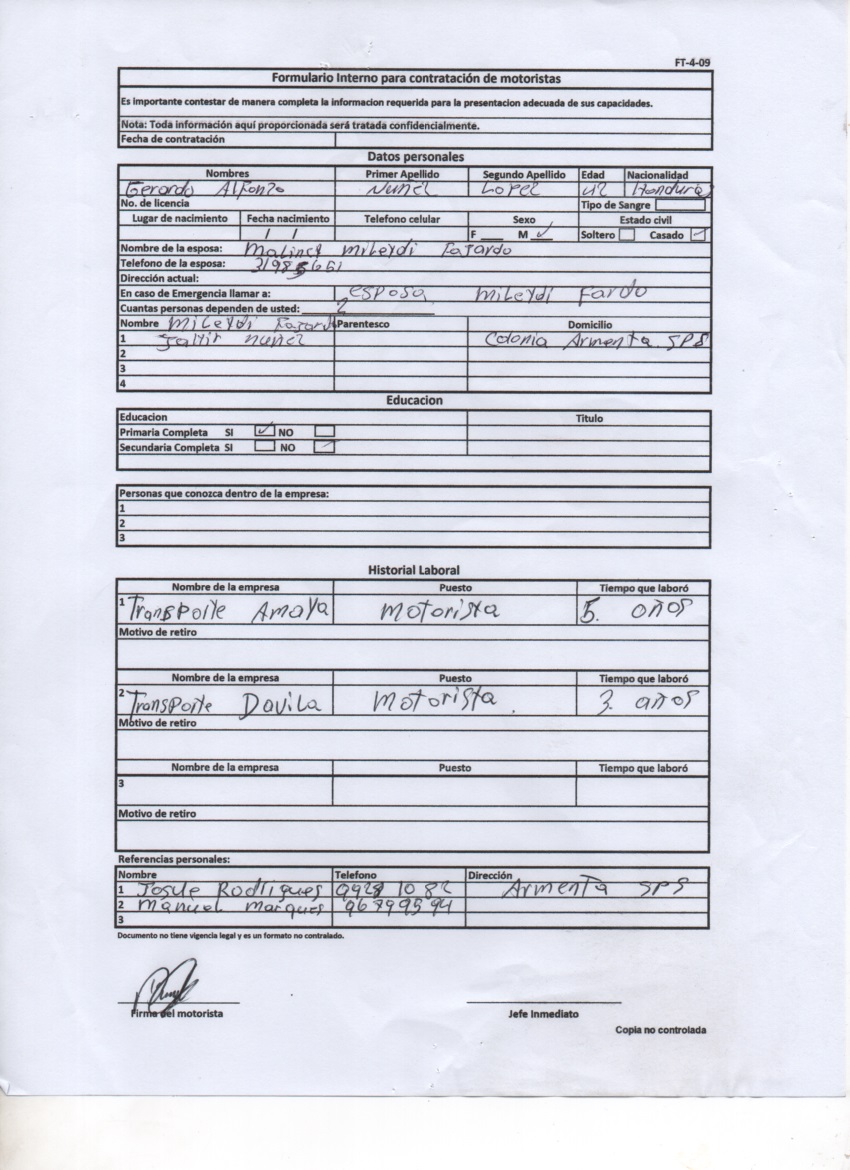 FT-4-09
Formulario Interno para contratación de motoristas
Es importante contestar de manera completa la informacion requerida para la presentacion adecuada de sus capacidades.
Nota: Toda información aquí proporcionada será tratada confidencialmente.
Fecha de contratación
Datos personales
Nombres Primer Apellido Segundo Apellido Edad Nacionalidad
Gerardo Alfonzo Nuñez Lopez 42 Hondura
No. de licencia Tipo de Sangre
Lugar de nacimiento Fecha nacimiento Telefono celular Sexo Estado civil
/ / F M ✓ Soltero Casado
Nombre de la esposa: Mileydi Fajardo
Telefono de la esposa:
Dirección actual:
En caso de Emergencia llamar a: esposa Mileydi Fardo
Cuantas personas dependen de usted: 2
Nombre Mileydi Fajardo Parentesco Domicilio
1 nuñez Colonia Armenta SPS
2
3
4
Educacion
Educacion Titulo
Primaria Completa SI ✓ NO
Secundaria Completa SI NO
Personas que conozca dentro de la empresa:
1
2
3
Historial Laboral
Nombre de la empresa Puesto Tiempo que laboró
1 Transporte Amaya Motorista 5. años
Motivo de retiro
Nombre de la empresa Puesto Tiempo que laboró
2 Transporte Davila Motorista 3. años
Motivo de retiro
Nombre de la empresa Puesto Tiempo que laboró
3
Motivo de retiro
Referencias personales:
Nombre Telefono Dirección
1 Josue Rodrigues 1082 Armenta SPS
2 Manuel Marques 96799594
3
Documento no tiene vigencia legal y es un formato no contralado.
Firma del motorista Jefe Inmediato
Copia no controlada